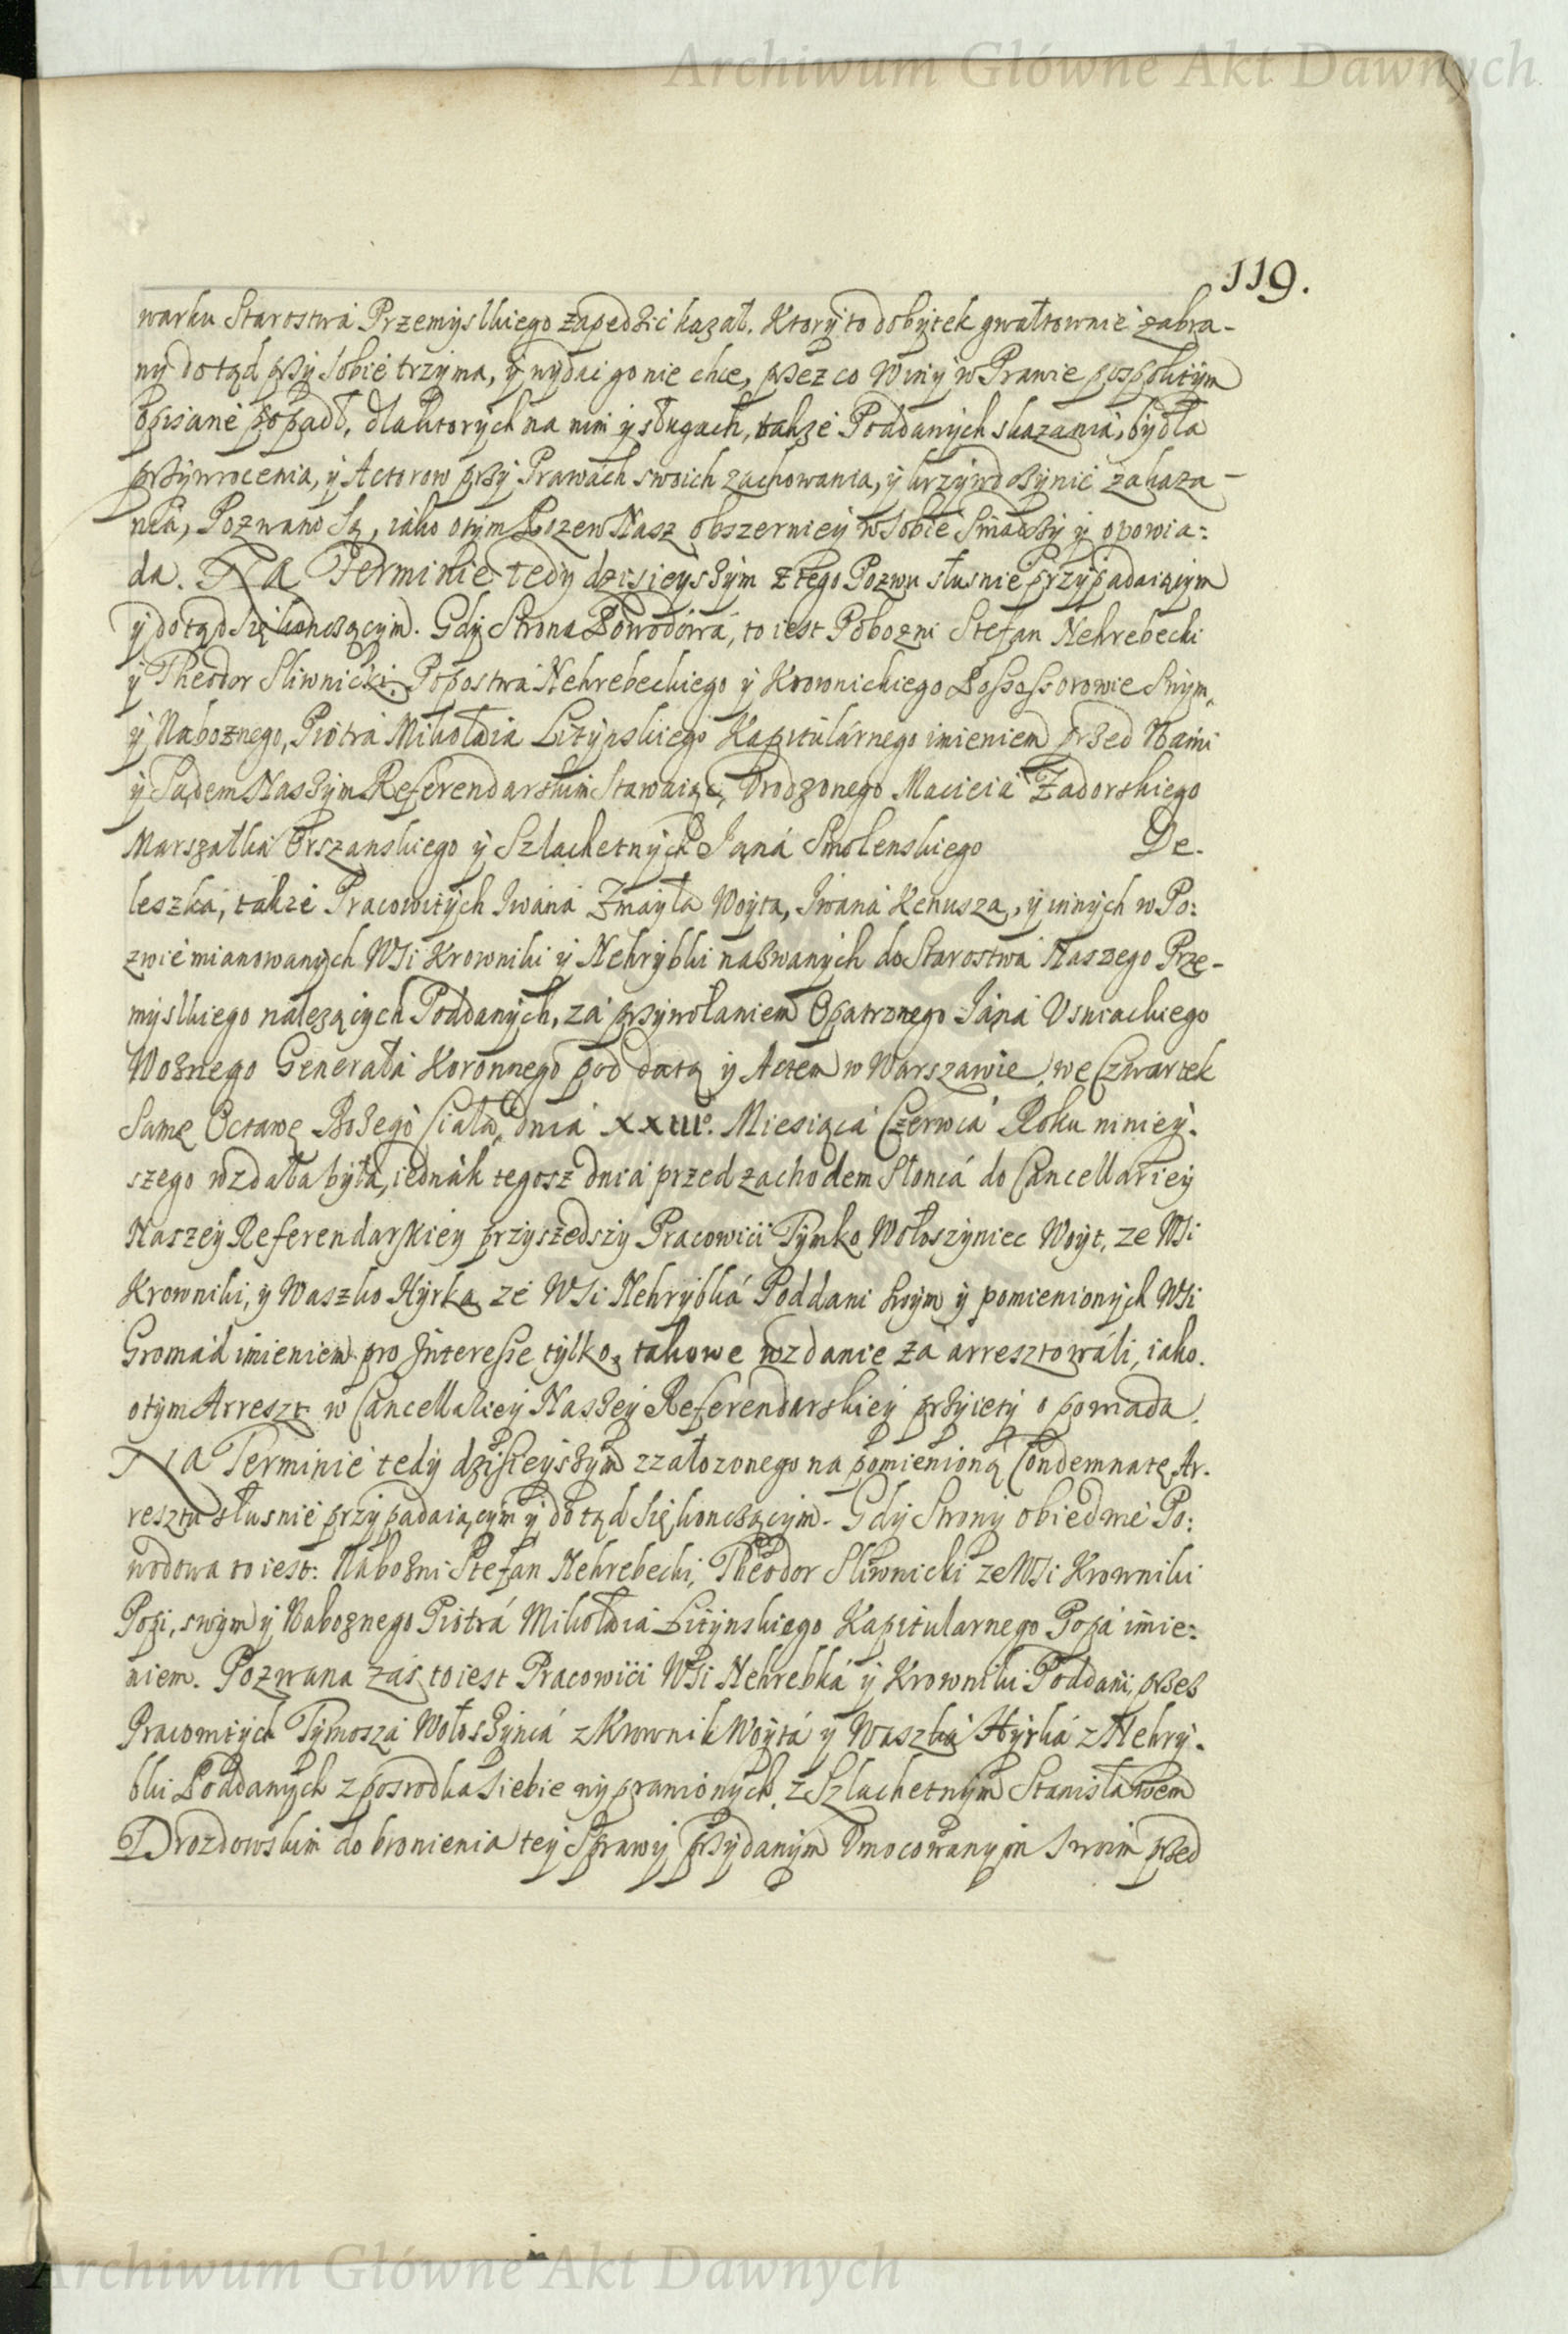 Archiwum Główne Akt Dawnych
119.
warku Starostwá Przemyslkiego zapędzić kazał. Ktory to dobytek gwałtownie zabra-
ny dotąd przy sobie trzyma, y wydai go nie chce, przez co Winy w Prawie pospolitym
opisane popadł, dla ktorych na nim y sługach, także Poddanych skazania, bydła
przywrocenia, y Actorow przy Prawach swoich zachowania, y krzywd czynić zakaza-
nia, Pozwano Są, iako otym Pozew Nasz obszerniey w sobie Swiadczy y opowia:
da. Na Terminie tedy dzisieyszym z tego Pozwu słusnie przypadaiącym
y dotąd się konczącym. Gdy Strona Powodowa, to iest Pobozni Stefan Nehrebecki
y Theodor Sliwnicki Popostwa Nehrebeckiego y Krownickiego Possessorowie Swym,
y Naboznego, Piotrá Mikołáia Litynskiego Kapitulárnego imieniem przed Nami
y Sądem Naszym Referendarskim Stawaiąc, Vrodzonego Macieiá Zadorskiego
Marszałka Orszanskiego y Szlachetnych Janá Smolenskiego De-
leszká, także Pracowitych Iwaná Zmayła Woyta, Iwaná Kenusza, y innych w Po:
zwie mianowanych Wsi Krowniki y Nehrybki nazwanych do Starostwá Naszego Prze-
myslkiego należących Poddanych, zá przywołaniem Opatrznego Jáná Vsniackiego
Woznego Generałá Koronnego pod datą y Actem w Warszawie, we Czwartek
Samę Octawę Bożego Ciała, dnia XXIII°. Miesiącá Czerwcá Roku niniey-
szego wzdała była, iednák tegosz dniá przed zachodem Słoncá do Cancellariey
Naszey Referendarskiey przyszedszy Pracowici Tymko Wołoszyniec Woyt, ze Wsi
Krowniki, y Waszko Hyrka ze Wsi Nehrybká Poddani Swym y pomienionych Wsi
Gromád imieniem pro Interesse tylko, takowe wzdanie zá arresztowáli, iako.
otym Arreszt w Cancellariey Naszey Referendarskiey przyięty opowiada.
Na Terminie tedy dzisieyszym z założonego na pomienioną Condemnatę Ar-
resztu słusnie przypadaiącym y dotąd się konczącym. Gdy Strony obiedwie Po:
wodowa to iest: Nabożni Stefan Nehrebecki, Theodor Sliwnicki ze Wsi Krowniki
Popi, swym y Nabożnego Piotrá Mikołáiá Litynskiego Kapitularnego Popá imie:
niem. Pozwana zaś to iest Pracowici Wsi Nehrebká y Krowniki Poddani, przez
Pracowitych Tymoszá Wołoszyncá z Krownik Woytá y Waszká Hyrká z Nehry-
bki Poddanych z posrodka siebie wyprawionych, z Szlachetnym Stanisławem
Drozdowskim do bronienia tey Sprawy przydanym Vmocowanym swoim przed
Archiwum Główne Akt Dawnych